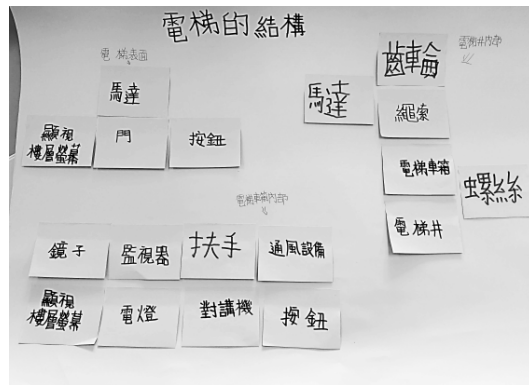 電梯的結構
電梯表面
馬達
顯視
樓層螢幕
門
按鈕
電梯井內部
齒輪
馬達
繩索
電梯車箱
螺絲
電梯井
電梯車箱內部
鏡子
監視器
扶手
通風設備
顯視
樓層螢幕
電燈
對講機
按鈕